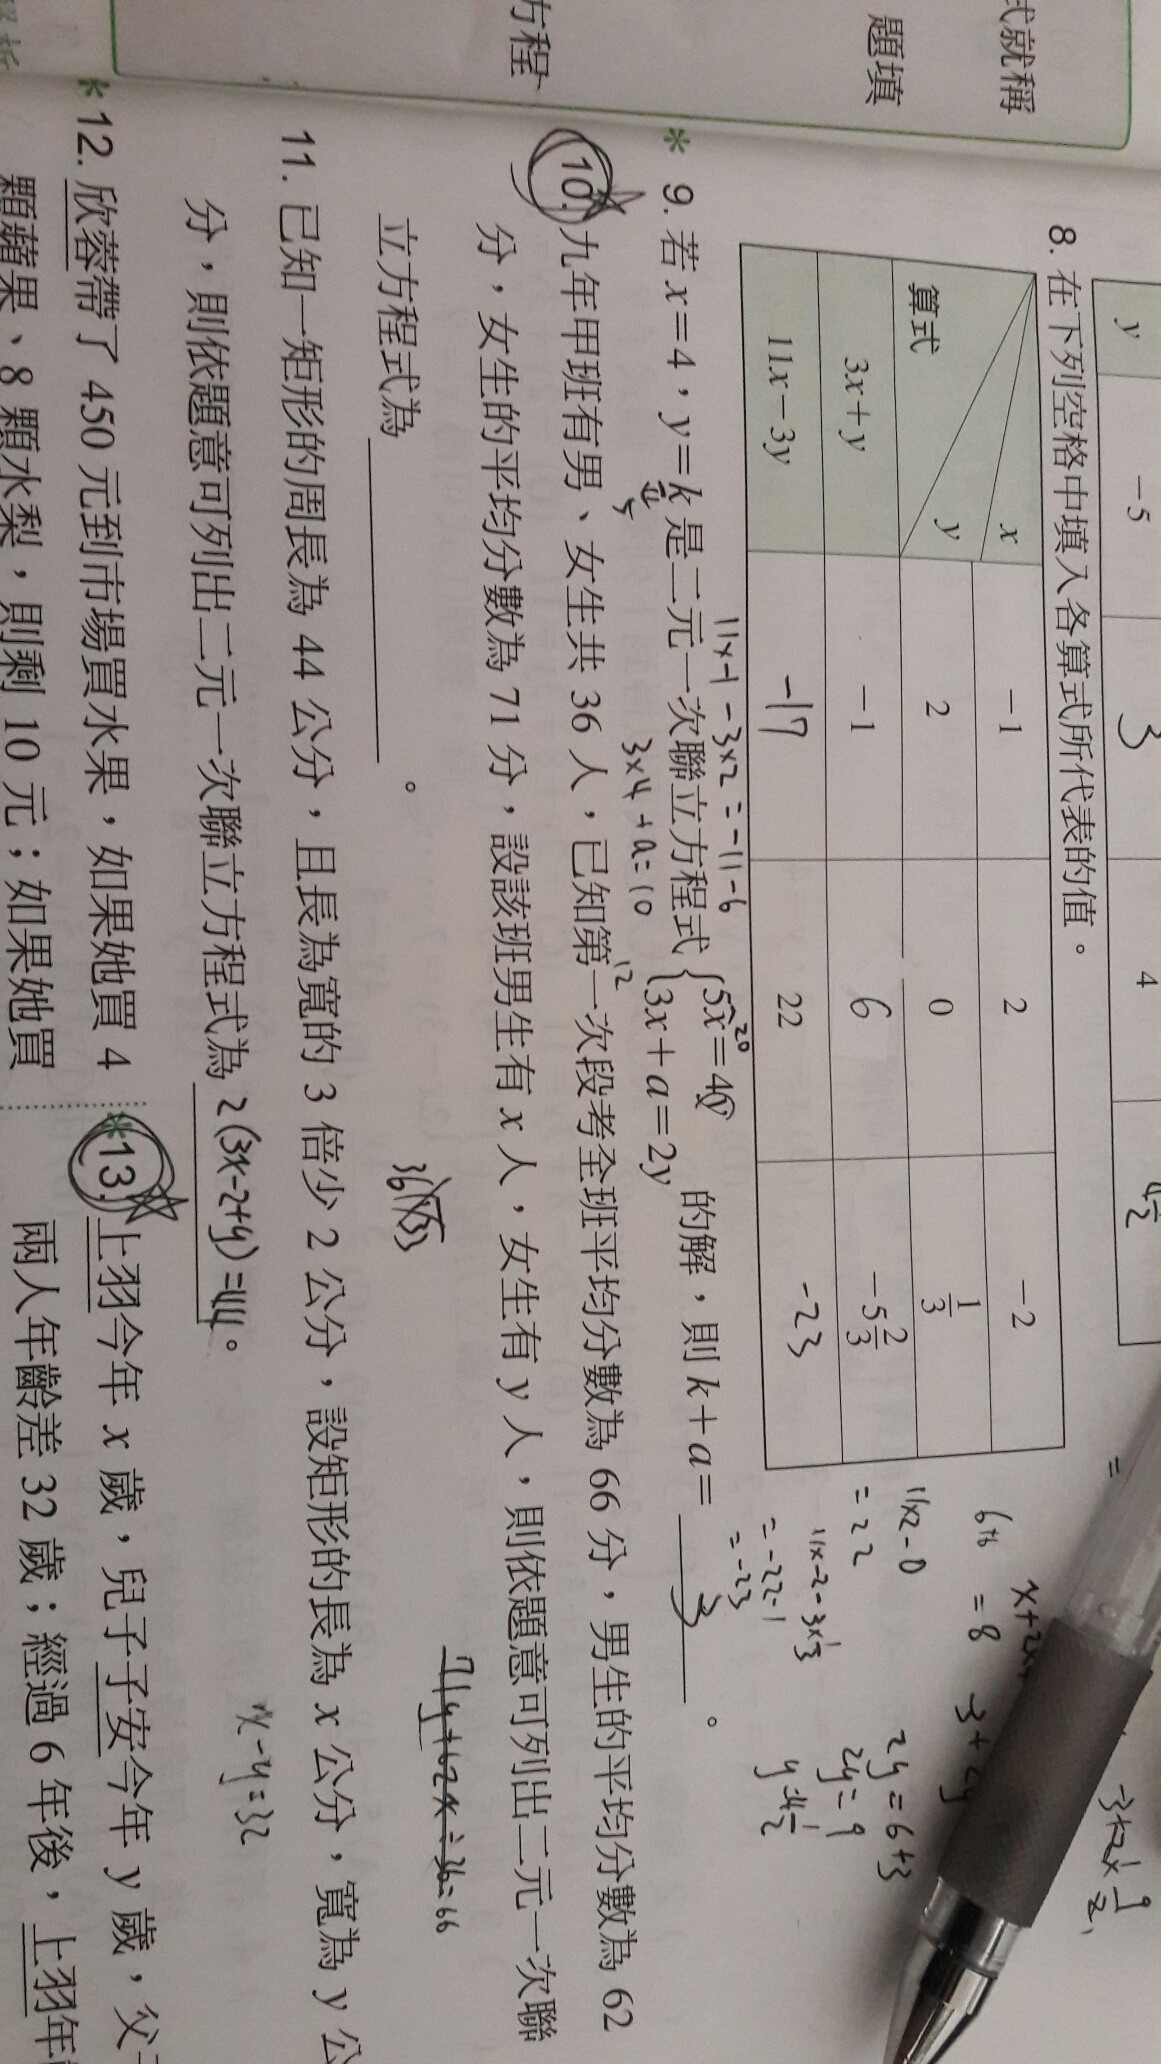 式就稱
題填
方程
y -5 3 4 4½
8. 在下列空格中填入各算式所代表的值。
x -1 2 -2
算式 y 2 0 1/3
3x+y -1 6 -5 2/3
11x-3y -17 22 -23
6+8 = 8
11×2-0
=22
11×-2-3×⅓
=-22-1
=-23
2y=6+3
2y=9
y=4½
11×-1-3×2=-11-6
* 9. 若 x=4，y=k 是二元一次聯立方程式 {5x=4y 3x+a=2y 的解，則 k+a= 3 。
20
5
3×4+a=10
12
10. 九年甲班有男、女生共 36 人，已知第一次段考全班平均分數為 66 分，男生的平均分數為 62
分，女生的平均分數為 71 分，設該班男生有 x 人，女生有 y 人，則依題意可列出二元一次聯
立方程式為 。
71y+62x÷36=66
11. 已知一矩形的周長為 44 公分，且長為寬的 3 倍少 2 公分，設矩形的長為 x 公分，寬為 y 公
分，則依題意可列出二元一次聯立方程式為 2(3x-2+y)=44 。
x-y=32
* 12. 欣蓉帶了 450 元到市場買水果，如果她買 4
顆蘋果、8 顆水梨，則剩 10 元；如果她買
* 13. 上羽今年 x 歲，兒子子安今年 y 歲，父
兩人年齡差 32 歲；經過 6 年後，上羽年